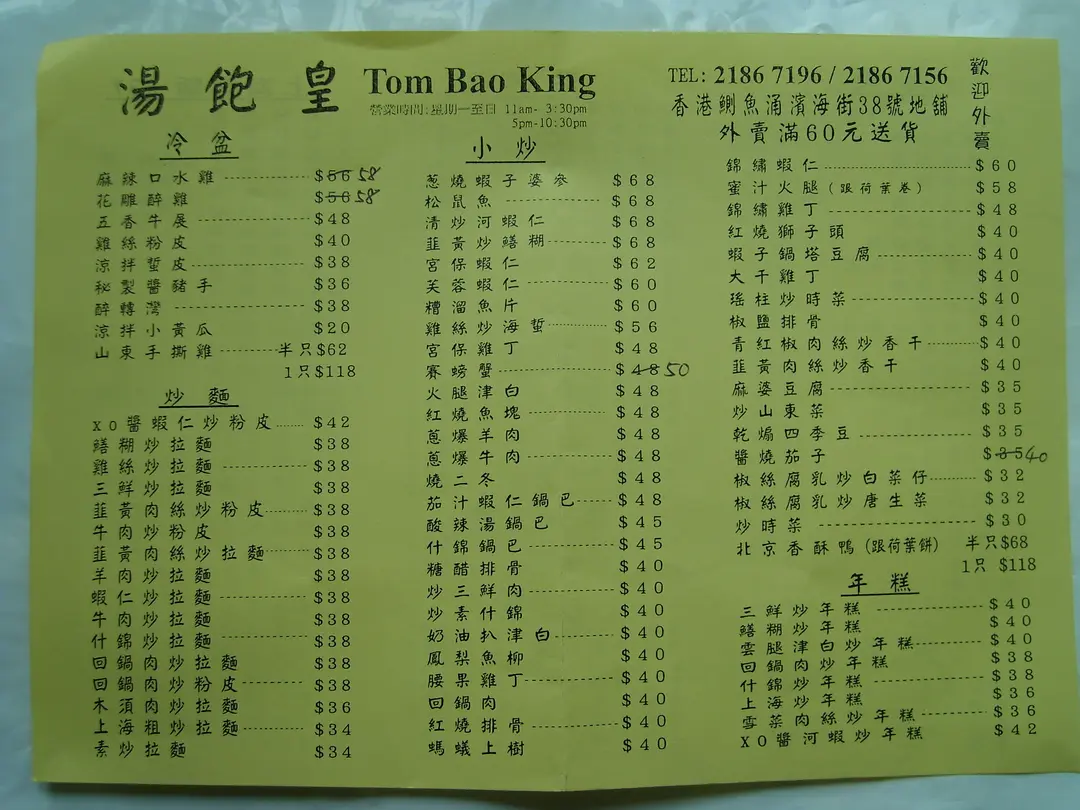 湯飽皇 Tom Bao King
營業時間:星期一至日 11am- 3:30pm
5pm-10:30pm
TEL: 2186 7196 / 2186 7156
香港鰂魚涌濱海街38號地舖
外賣滿60元送貨
歡迎外賣
冷盆
麻辣口水雞 $56 58
花雕醉雞 $56 58
五香牛展 $48
雞絲粉皮 $40
涼拌蜇皮 $38
秘製醬豬手 $36
醉轉灣 $38
涼拌小黃瓜 $20
山東手撕雞 半只$62
1只$118
炒麵
XO醬蝦仁炒粉皮 $42
鱔糊炒拉麵 $38
雞絲炒拉麵 $38
三鮮炒拉麵 $38
韮黃肉絲炒粉皮 $38
牛肉炒粉皮 $38
韮黃肉絲炒拉麵 $38
羊肉炒拉麵 $38
蝦仁炒拉麵 $38
牛肉炒拉麵 $38
什錦炒拉麵 $38
回鍋肉炒拉麵 $38
回鍋肉炒粉皮 $38
木須肉炒拉麵 $36
上海粗炒拉麵 $34
素炒拉麵 $34
小炒
葱燒蝦子婆參 $68
松鼠魚 $68
清炒河蝦仁 $68
韮黃炒鱔糊 $68
宮保蝦仁 $62
芙蓉蝦仁 $60
糟溜魚片 $60
雞絲炒海蜇 $56
宮保雞丁 $48
賽螃蟹 $48 50
火腿津白 $48
紅燒魚塊 $48
蔥爆羊肉 $48
蔥爆牛肉 $48
燒二冬 $48
茄汁蝦仁鍋巴 $48
酸辣湯鍋巴 $45
什錦鍋巴 $45
糖醋排骨 $40
炒三鮮肉 $40
炒素什錦 $40
奶油扒津白 $40
鳳梨魚柳 $40
腰果雞丁 $40
回鍋肉 $40
紅燒排骨 $40
螞蟻上樹 $40
錦繡蝦仁 $60
蜜汁火腿(跟荷葉卷) $58
錦繡雞丁 $48
紅燒獅子頭 $40
蝦子鍋塔豆腐 $40
大千雞丁 $40
瑤柱炒時菜 $40
椒鹽排骨 $40
青紅椒肉絲炒香干 $40
韮黃肉絲炒香干 $40
麻婆豆腐 $35
炒山東菜 $35
乾煸四季豆 $35
醬燒茄子 $35 40
椒絲腐乳炒白菜仔 $32
椒絲腐乳炒唐生菜 $32
炒時菜 $30
北京香酥鴨(跟荷葉餅) 半只$68
1只 $118
年糕
三鮮炒年糕 $40
鱔糊炒年糕 $40
雲腿津白炒年糕 $40
回鍋肉炒年糕 $38
什錦炒年糕 $38
上海炒年糕 $36
雪菜肉絲炒年糕 $36
XO醬河蝦炒年糕 $42